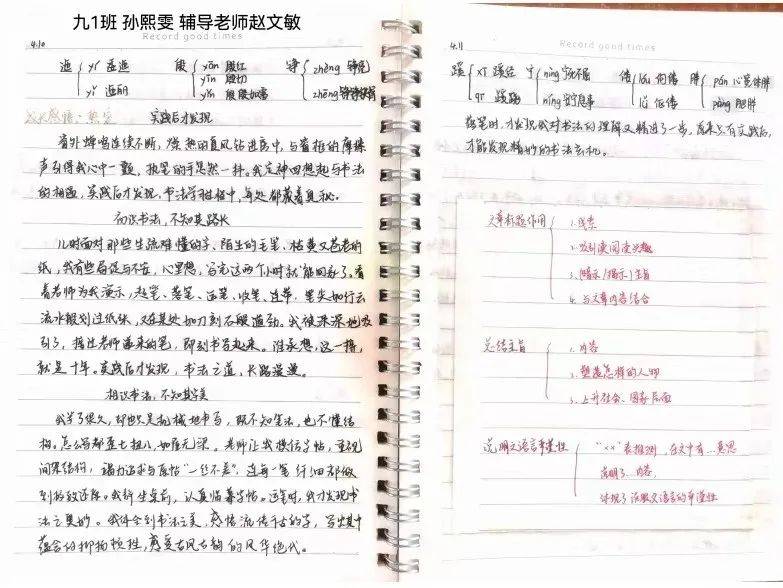 九1班 孙熙雯 辅导老师赵文敏
Record good times
4.10
迤 yí 逶迤 殷 yān 殷红 铮 zhēng
yǐn
yīn 殷殷
实践后才发现
窗外蝉鸣连续不断，燥热的夏风钻进房中，与窗框的摩擦
声引得我心中一颤，执笔的手忽然一抖。我定神回想起与书法
的相遇，实践后才发现，书法学习程中，每处都藏着奥秘。
初识书法，不知其路长
儿时面对那些生疏难懂的字、陌生的毛笔、枯黄又苍老的
纸，我有些局促与不安，心里想，写完这两个小时就能回家了。看
着老师为我演示，起笔、落笔、运笔、收笔、连带，笔尖如行云
流水般划过纸张，又在某处如刀刻石般遒劲。我被深深地吸
引了，接过老师递来的笔，即刻书写起来。谁承想，这一接，
就是十年。实践后才发现，书法之道，长路漫漫。
相识书法，不知其美
我学了很久，却也只是机械地书写，既不知笔法，也不懂结
构。怎么写都歪七扭八，如履无深。老师让我模仿字帖，重视
间架结构，竭力追求与原帖“一丝不差”，连每一笔纤细都做
到。我行坐桌前，认真临摹字帖。运笔时，我才发现书
法之奥妙。我体会到书法之美，感悟流传千古的字，写出其中
蕴含的抑扬顿挫，感受古风古韵的风华绝代。
4.11
Record good times
蹊 xī 蹊径 宁 níng 宁死不屈 偻 lóu 佝偻 胖 pán 心宽体胖
qī 蹊跷 nìng 宁 lǚ 伛偻 pàng 肥胖
搁笔时，才发现我对书法的理解又精进了一步，原来只有实践后，
才能发现精妙的书法玄机。
文章标题作用 1. 线索
2. 吸引读阅读兴趣
3. (暗示/揭示)主旨
4. 与文章内容结合
总结主旨 1. 内容
2. 塑造怎样的人物
3. 上升社会、国家层面
说明文语言准确性 “××”表推测，在文中有…意思
说明了…内容，
体现了说明文语言的准确性